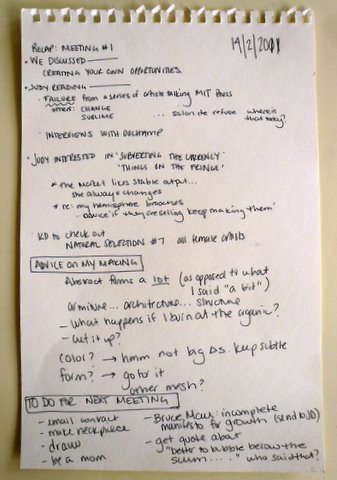 RECAP: MEETING #1
14/2/2011
• WE DISCUSSED
CREATING YOUR OWN OPPORTUNITIES.
• JUDY READING
• FAILURE from a series of artists talking MIT Press
others: CHANGE
SUBLIME ... salon de refuse where is that today?
INTERVIEWS WITH DUCHAMP
• JUDY INTERESTED IN 'SUBVERTING THE CURRENCY'
'THINGS ON THE FRINGE'
* the market likes stable output...
she always changes
* re: my hemisphere brooches
.. advice 'if they are selling keep making them'
• KD to check out
NATURAL SELECTION #7 all female artists
ADVICE on MY MAKING
Abstract forms a lot (as opposed to what
I said "a bit")
armature... architecture... structure
- What happens if I burn out the organic?
- cut it up?
color? → hmm not big DS. keep subtle
form? → go for it
other mesh?
TO DO FOR NEXT MEETING
- email contract
- make neckpiece
- draw
- be a mom
- Bruce Mau: incomplete
manifesto for growth (send to JD)
- get quote about
"better to bubble below the
scum....." who said that?